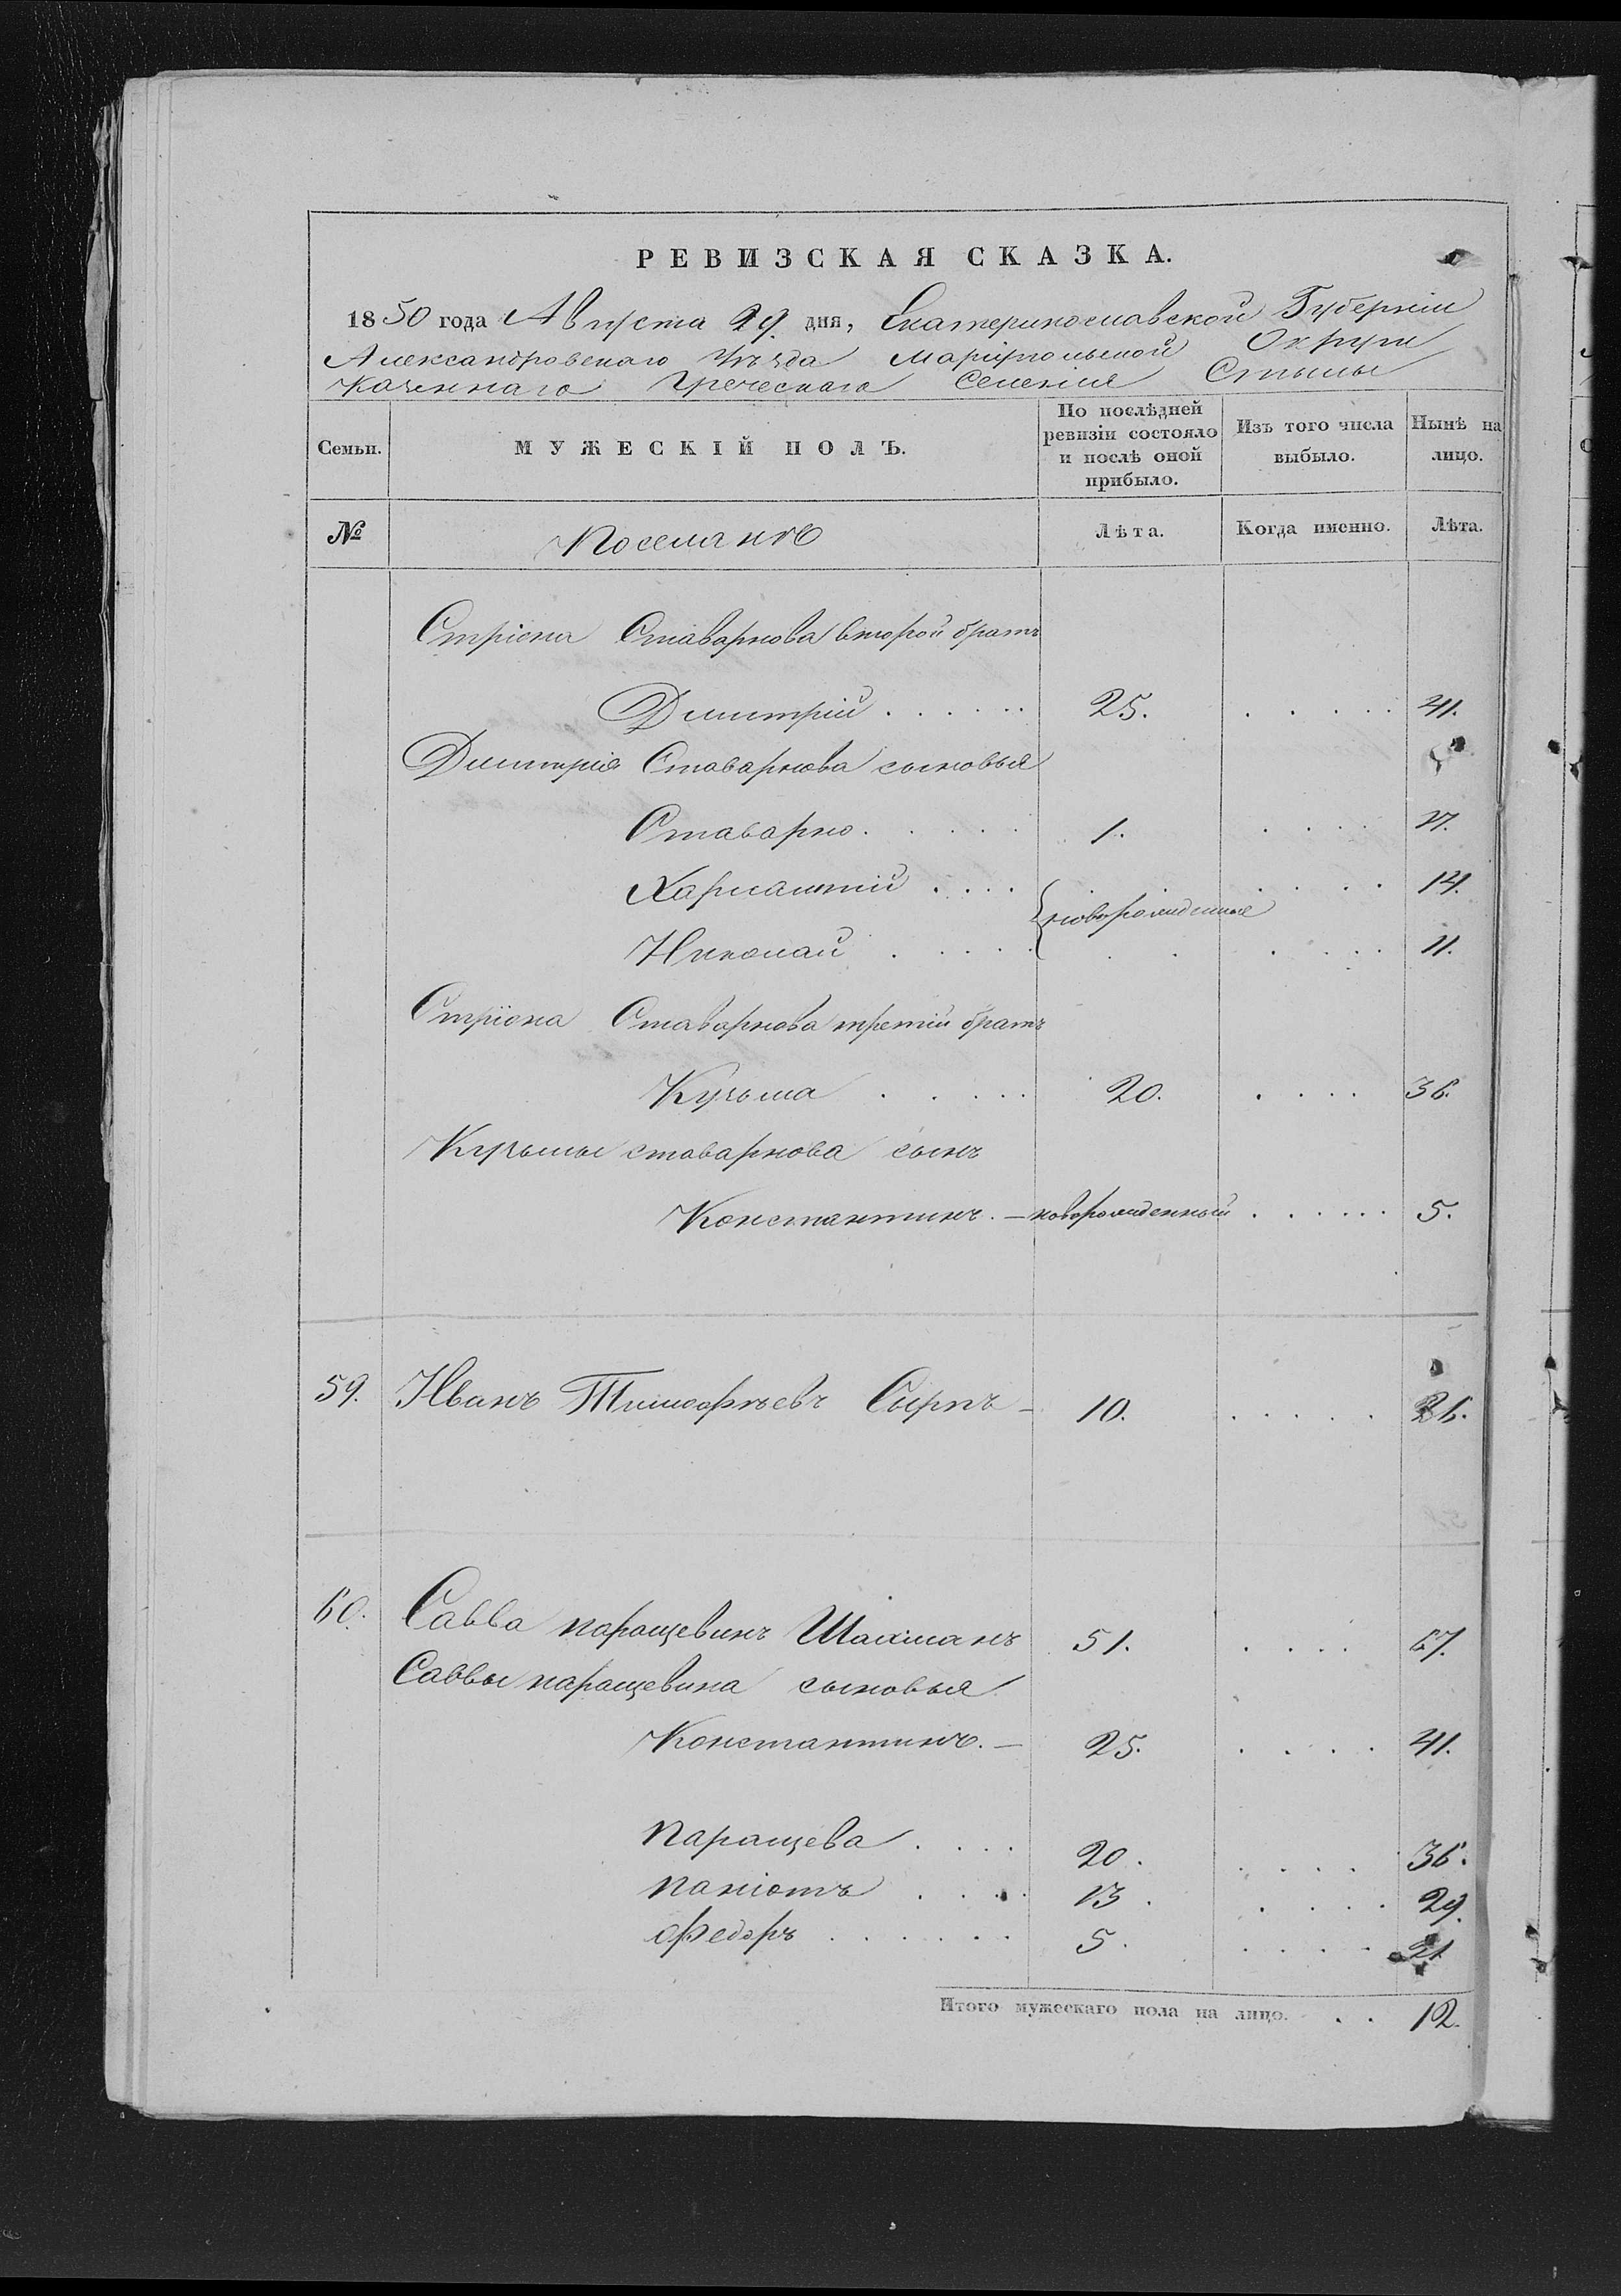 РЕВИЗСКАЯ СКАЗКА.
1850 года Августа 29 дня, Екатеринославской Губерніи
Александровскаго Уѣзда Маріупольской Округи
Казеннаго Греческаго Селенія Стылы
Семьи. МУЖЕСКІЙ ПОЛЪ. По послѣдней ревизіи состояло и послѣ оной прибыло. Изъ того числа выбыло. Нынѣ на лицо.
№ Поселянъ Лѣта. Когда именно. Лѣта.
Стріона Ставарнова второй братъ
Дмитрій . . . . . . 25. . . . . . 41.
Дмитрія Ставарнова сыновья
Ставарно . . . . . 1. . . . . 17.
Харлампій . . . . . . . . . . 14.
новорожденные
Николай . . . . . . . . . . . 11.
Стріона Ставарнова третій братъ
Кузьма . . . . . 20. . . . . 36.
Кузьмы ставарнова сынъ
Константинъ. — новорожденный . . . . . . 5.
59. Иванъ Тимофѣевъ Сырпъ — 10. . . . . . 26.
60. Савва паращевинъ Шахманъ 51. . . . . 67.
Саввы паращевина сыновья
Константинъ. — 25. . . . . 41.
Паращева . . . . 20. . . . . 36.
Паніотъ . . . . 13. . . . . 29.
Федоръ . . . . . . 5. . . . . 21
Итого мужескаго пола на лицо. . . 12.